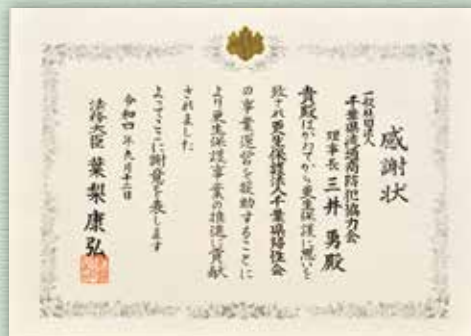 感謝状
一般社団法人
千葉県遊技場防犯協力会
理事長 三井 勇 殿
貴殿はかねてから更生保護に思いを
致され更生保護法人千葉県帰性会
の事業運営を援助することに
より更生保護事業の推進に貢献
されました
よってここに謝意を表します
令和四年九月十二日
法務大臣 葉梨康弘